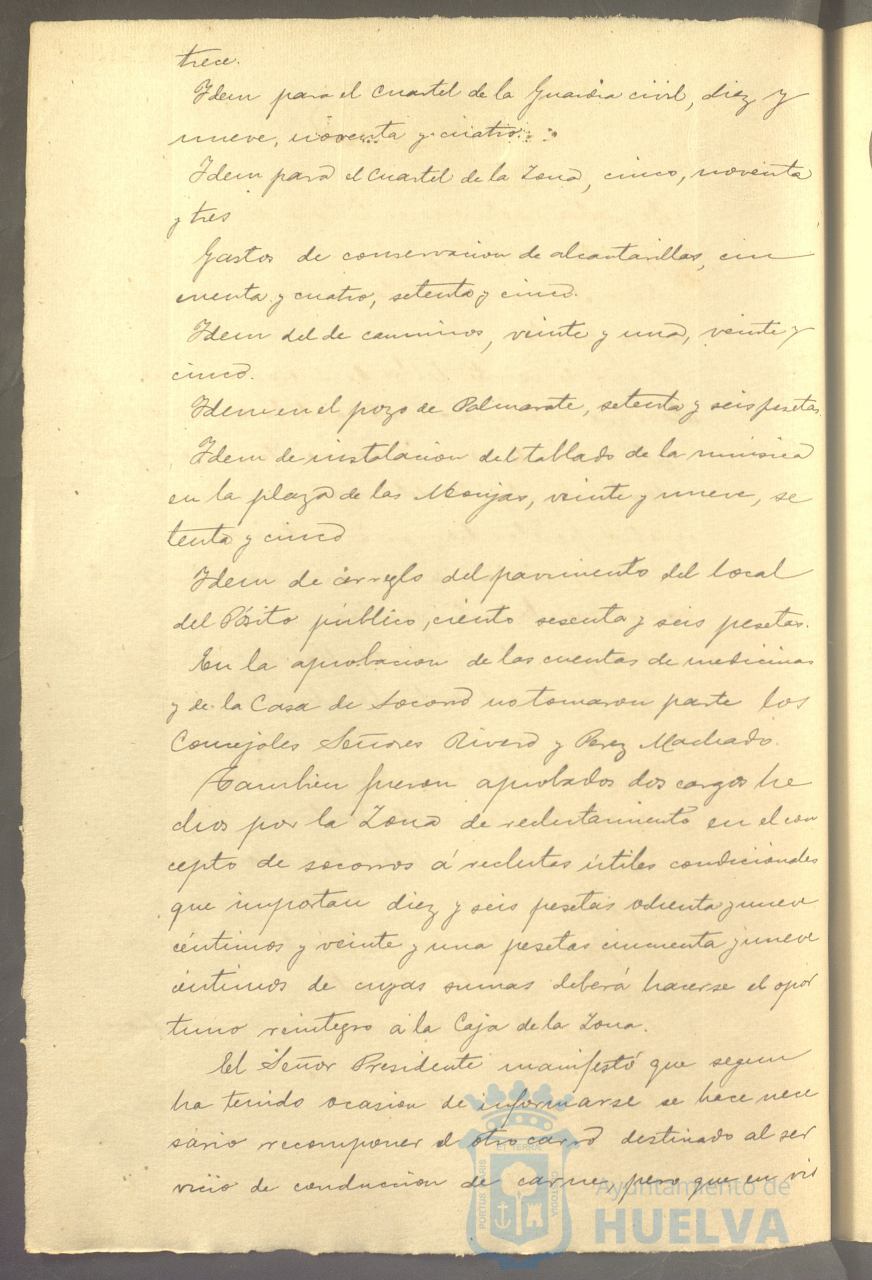 trece.
Idem para el Cuartel de la Guardia civil, diez y
nueve, noventa y cuatro.
Idem para el Cuartel de la Zona, cinco, noventa
y tres
Gastos de conservacion de alcantarillas, cin
cuenta y cuatro, setenta y cinco.
Idem del de caminos, veinte y una, veinte y
cinco.
Idem en el pozo de Palmarate, setenta y seis pesetas.
Idem de instalacion del tablado de la música
en la plaza de las Monjas, veinte y nueve, se
tenta y cinco
Idem de arreglo del pavimento del local
del Pósito público, ciento sesenta y seis pesetas.
En la aprobacion de las cuentas de medicinas
y de la Casa de Socorro no tomaron parte los
Concejales Señores Rivero y Perez Machado.
Tambien fueron aprobados dos cargos he
chos por la Zona de reclutamiento en el con
cepto de socorros á reclutas útiles condicionales
que importan diez y seis pesetas ochenta y nueve
céntimos y veinte y una pesetas cincuenta y nueve
céntimos de cuyas sumas deberá hacerse el opor
tuno reintegro a la Caja de la Zona.
El Señor Presidente manifestó que segun
ha tenido ocasion de informarse se hace nece
sario recomponer el otro carro destinado al ser
vicio de conduccion de carne, pero que en vis
PORTUS MARIS
ET TERRÆ
CUSTODIA
Ayuntamiento de
HUELVA